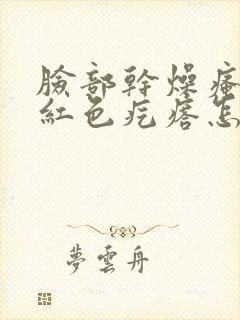 臉部幹燥瘙
紅色疙瘩怎
夢雲舟